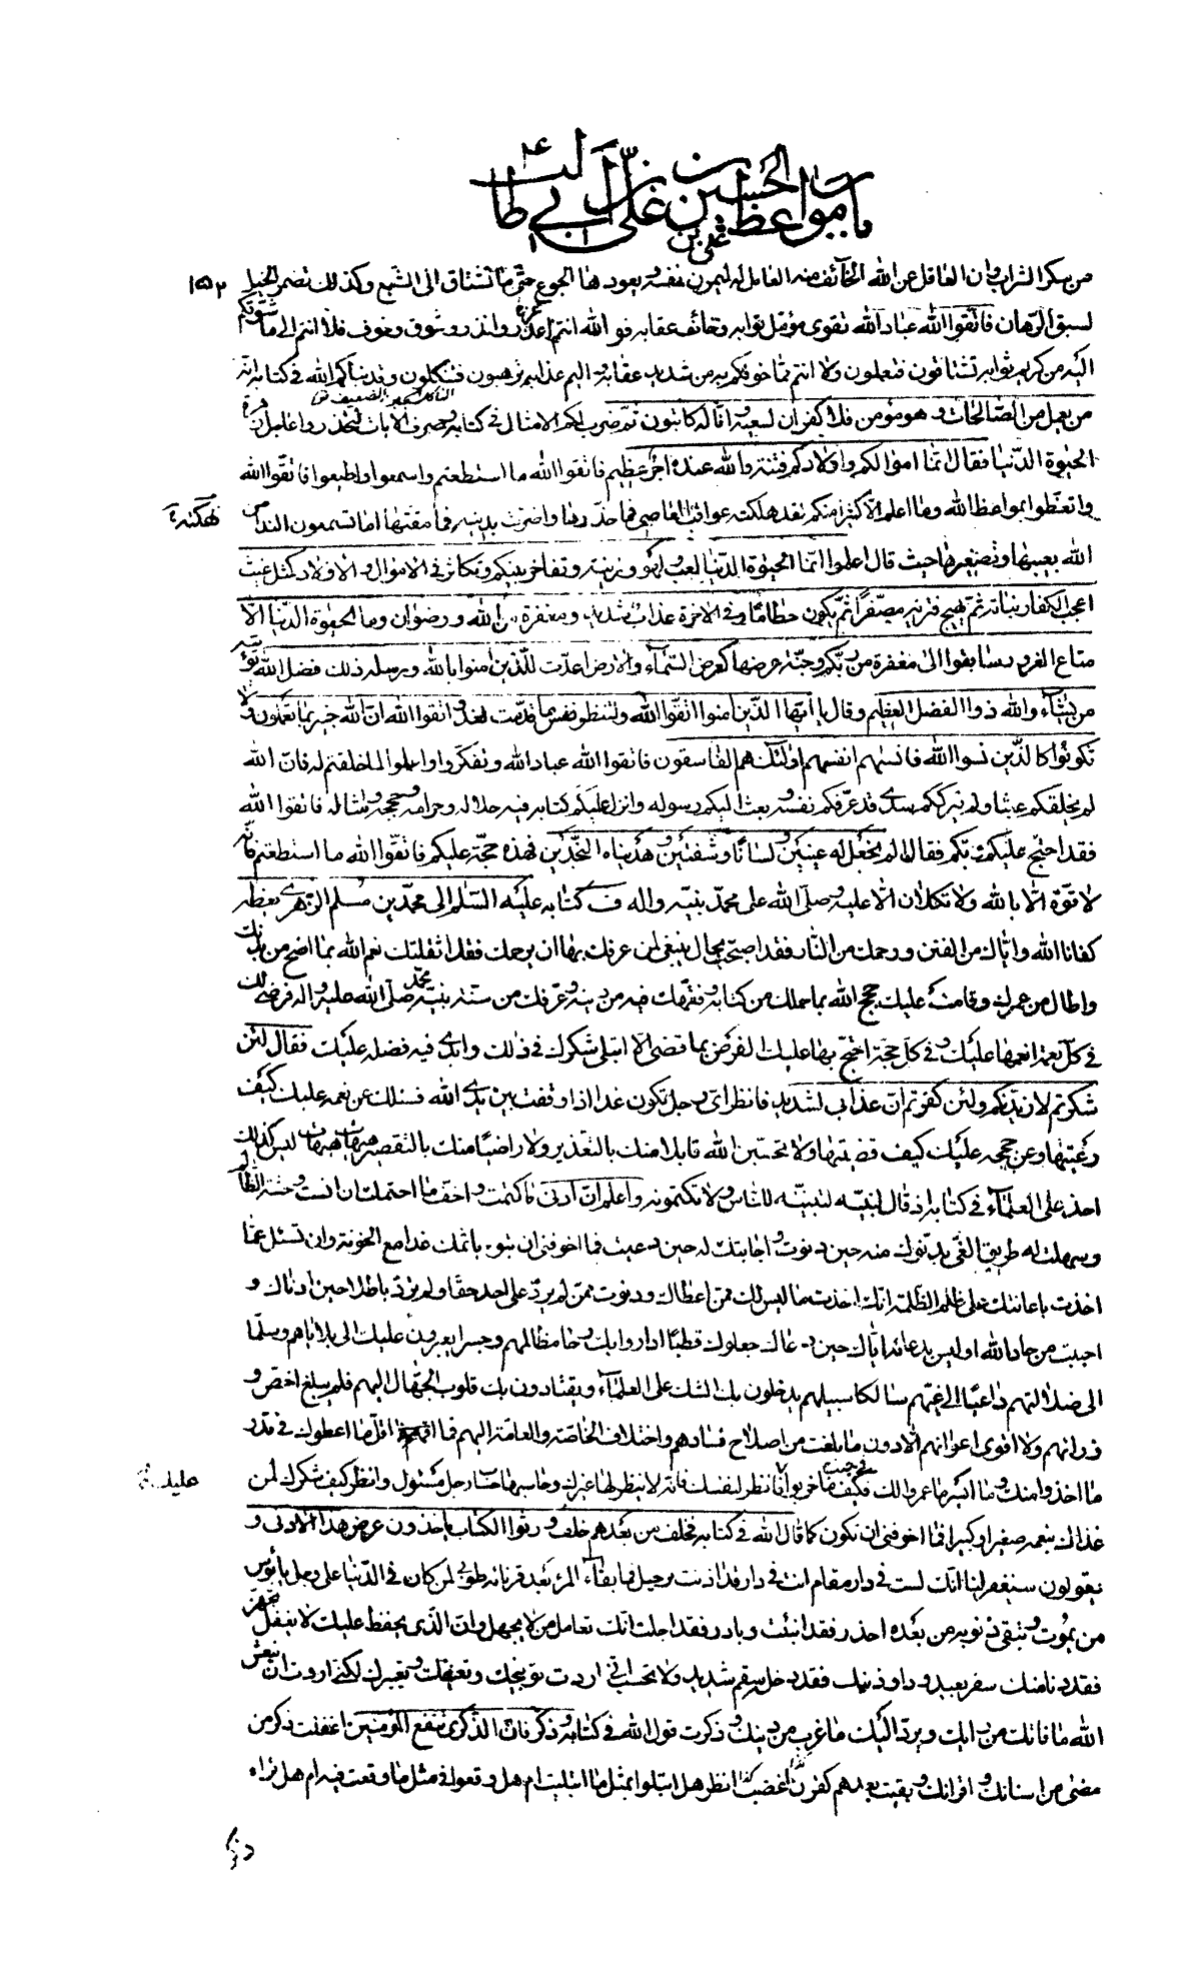 باب مواعظ الحسين بن علي بن ابي طالب ع
١٥٢
من سكر الشراب وان العاقل عن الله الخائف منه العامل له ليمرن نفسه ويعودها الجوع حتى ما تشتاق الى الشبع وكذلك تضمر الخيل
لسبق الرهان فاتقوا الله عباد الله تقوى مؤمل ثوابه وخائف عقابه فو الله انتم اعذر وانذر وشوق وخوف فلا انتم الى ما شوقكم
اليه من كريم ثوابه تشتاقون فتعملون ولا انتم مما خوفكم به من شديد عقابه واليم عذابه ترهبون فتنكلون وقد نباكم الله في كتابه انه
من يعمل من الصالحات وهو مؤمن فلا كفران لسعيه وانا له كاتبون ثم ضرب لكم الامثال في كتابه وصرف الايات لتحذروا عاجل زهرة
الحيوة الدنيا فقال انما اموالكم واولادكم فتنة والله عنده اجر عظيم فاتقوا الله ما استطعتم واسمعوا واطيعوا فاتقوا الله
واتعظوا بمواعظ الله وما اعلم الا كثيرا منكم لقد هلكته عواقب المعاصي فما حذرها واضرت بدينه فما مقتها اما تسمعون النداء من
الله بعيبها وتصغيرها حيث قال اعلموا انما الحيوة الدنيا لعب ولهو وزينة وتفاخر بينكم وتكاثر في الاموال والاولاد كمثل غيث
اعجب الكفار نباته ثم يهيج فتريه مصفرا ثم يكون حطاما وفي الاخرة عذاب شديد ومغفرة من الله ورضوان وما الحيوة الدنيا الا
متاع الغرور سابقوا الى مغفرة من ربكم وجنة عرضها كعرض السماء والارض اعدت للذين امنوا بالله ورسله ذلك فضل الله يؤتيه
من يشاء والله ذوا الفضل العظيم وقال يا ايها الذين امنوا اتقوا الله ولتنظر نفس ما قدمت لغد واتقوا الله ان الله خبير بما تعملون ولا
تكونوا كالذين نسوا الله فانسيهم انفسهم اولئك هم الفاسقون فاتقوا الله عباد الله وتفكروا واعملوا لما خلقتم له فان الله
لم يخلقكم عبثا ولم يترككم سدى قد عرفكم نفسه وبعث اليكم رسوله وانزل عليكم كتابه فيه حلاله وحرامه وحججه وامثاله فاتقوا الله
فقد احتج عليكم ربكم فقال الم نجعل له عينين ولسانا وشفتين وهديناه النجدين فهذه حجة عليكم فاتقوا الله ما استطعتم فانه
لا قوة الا بالله ولا تكلان الا عليه وصلى الله على محمد نبيه واله ف كتابه عليه السلم الى محمد بن مسلم الزهري يعظه
كفانا الله واياك من الفتن ورحمك من النار فقد اصبحت بحال ينبغي لمن عرفك بها ان يرحمك فقد اثقلتك نعم الله بما اصح من بدنك
واطال من عمرك وقامت عليك حجج الله بما حملك من كتابه وفقهك فيه من دينه وعرفك من سنة نبيه محمد صلى الله عليه واله فرضي لك
في كل نعمة انعمها عليك وفي كل حجة احتج بها عليك الفرض بما قضى الا ابتلى شكرك في ذلك وابدى فيه فضله عليك فقال لئن
شكرتم لازيدنكم ولئن كفرتم ان عذابي لشديد فانظر اي رجل تكون غدا اذا وقفت بين يدي الله فسئلك عن نعمه عليك كيف
رعيتها وعن حججه عليك كيف قضيتها ولا تحسبن الله قابلا منك بالتعذير ولا راضيا منك بالتقصير هيهات هيهات ليس كذلك
اخذ على العلماء في كتابه اذ قال لتبيننه للناس ولا تكتمونه واعلم ان ادنى ما كتمت واخف ما احتملت ان انست وحشة الظالم
وسهلت له طريق الغي بدنوك منه حين دنوت واجابتك له حين دعيت فما اخوفني ان تبوء باثمك غدا مع الخونة وان تسئل عما
اخذت باعانتك على ظلم الظلمة انك اخذت ما ليس لك ممن اعطاك ودنوت ممن لم يرد على احد حقا ولم ترد باطلا حين ادناك و
احببت من حاد الله اوليس بدعائه اياك حين دعاك جعلوك قطبا اداروا بك رحا مظالمهم وجسرا يعبرون عليك الى بلاياهم وسلما
الى ضلالتهم داعيا الى غيهم سالكا سبيلهم يدخلون بك الشك على العلماء ويقتادون بك قلوب الجهال اليهم فلم يبلغ اخص و
زرائهم ولا اقوى اعوانهم الا دون ما بلغت من اصلاح فسادهم واختلاف الخاصة والعامة اليهم فما اقل ما اعطوك في قدر
ما اخذوا منك وما اكثر ما عمروا لك فكيف ما خربوا فانظر لنفسك فانه لا ينظر لها غيرك وحاسبها حساب رجل مسئول وانظر كيف شكرك لمن
غذاك بنعمه صغيرا وكبيرا فما اخوفني ان تكون كما قال الله في كتابه فخلف من بعدهم خلف ورثوا الكتاب ياخذون عرض هذا الادنى و
يقولون سيغفر لنا انك لست في دار مقام انت في دار قد اذنت برحيل فما بقاء المرء بعد قرنائه طوبى لمن كان في الدنيا على وجل يا بؤس
من يموت وتبقى ذنوبه من بعده احذر فقد انبئت وبادر فقد اجلت انك تعامل من لا يجهل وان الذي يحفظ عليك لا يغفل تجهز
فقد دنا منك سفر بعيد وداو ذنبك فقد دخله سقم شديد ولا تحسب اني اردت توبيخك وتعنيفك وتعييرك لكني اردت ان ينعش
الله ما فاتك من رايك ويرد اليك ما عزب من دينك وذكرت قول الله في كتابه وذكر فان الذكرى تنفع المؤمنين اغفلت ذكر من
مضى من اسنانك واقرانك وبقيت بعدهم كقرن اعضب انظر هل ابتلوا بمثل ما ابتليت ام هل وقعوا في مثل ما وقعت فيه ام هل تراه